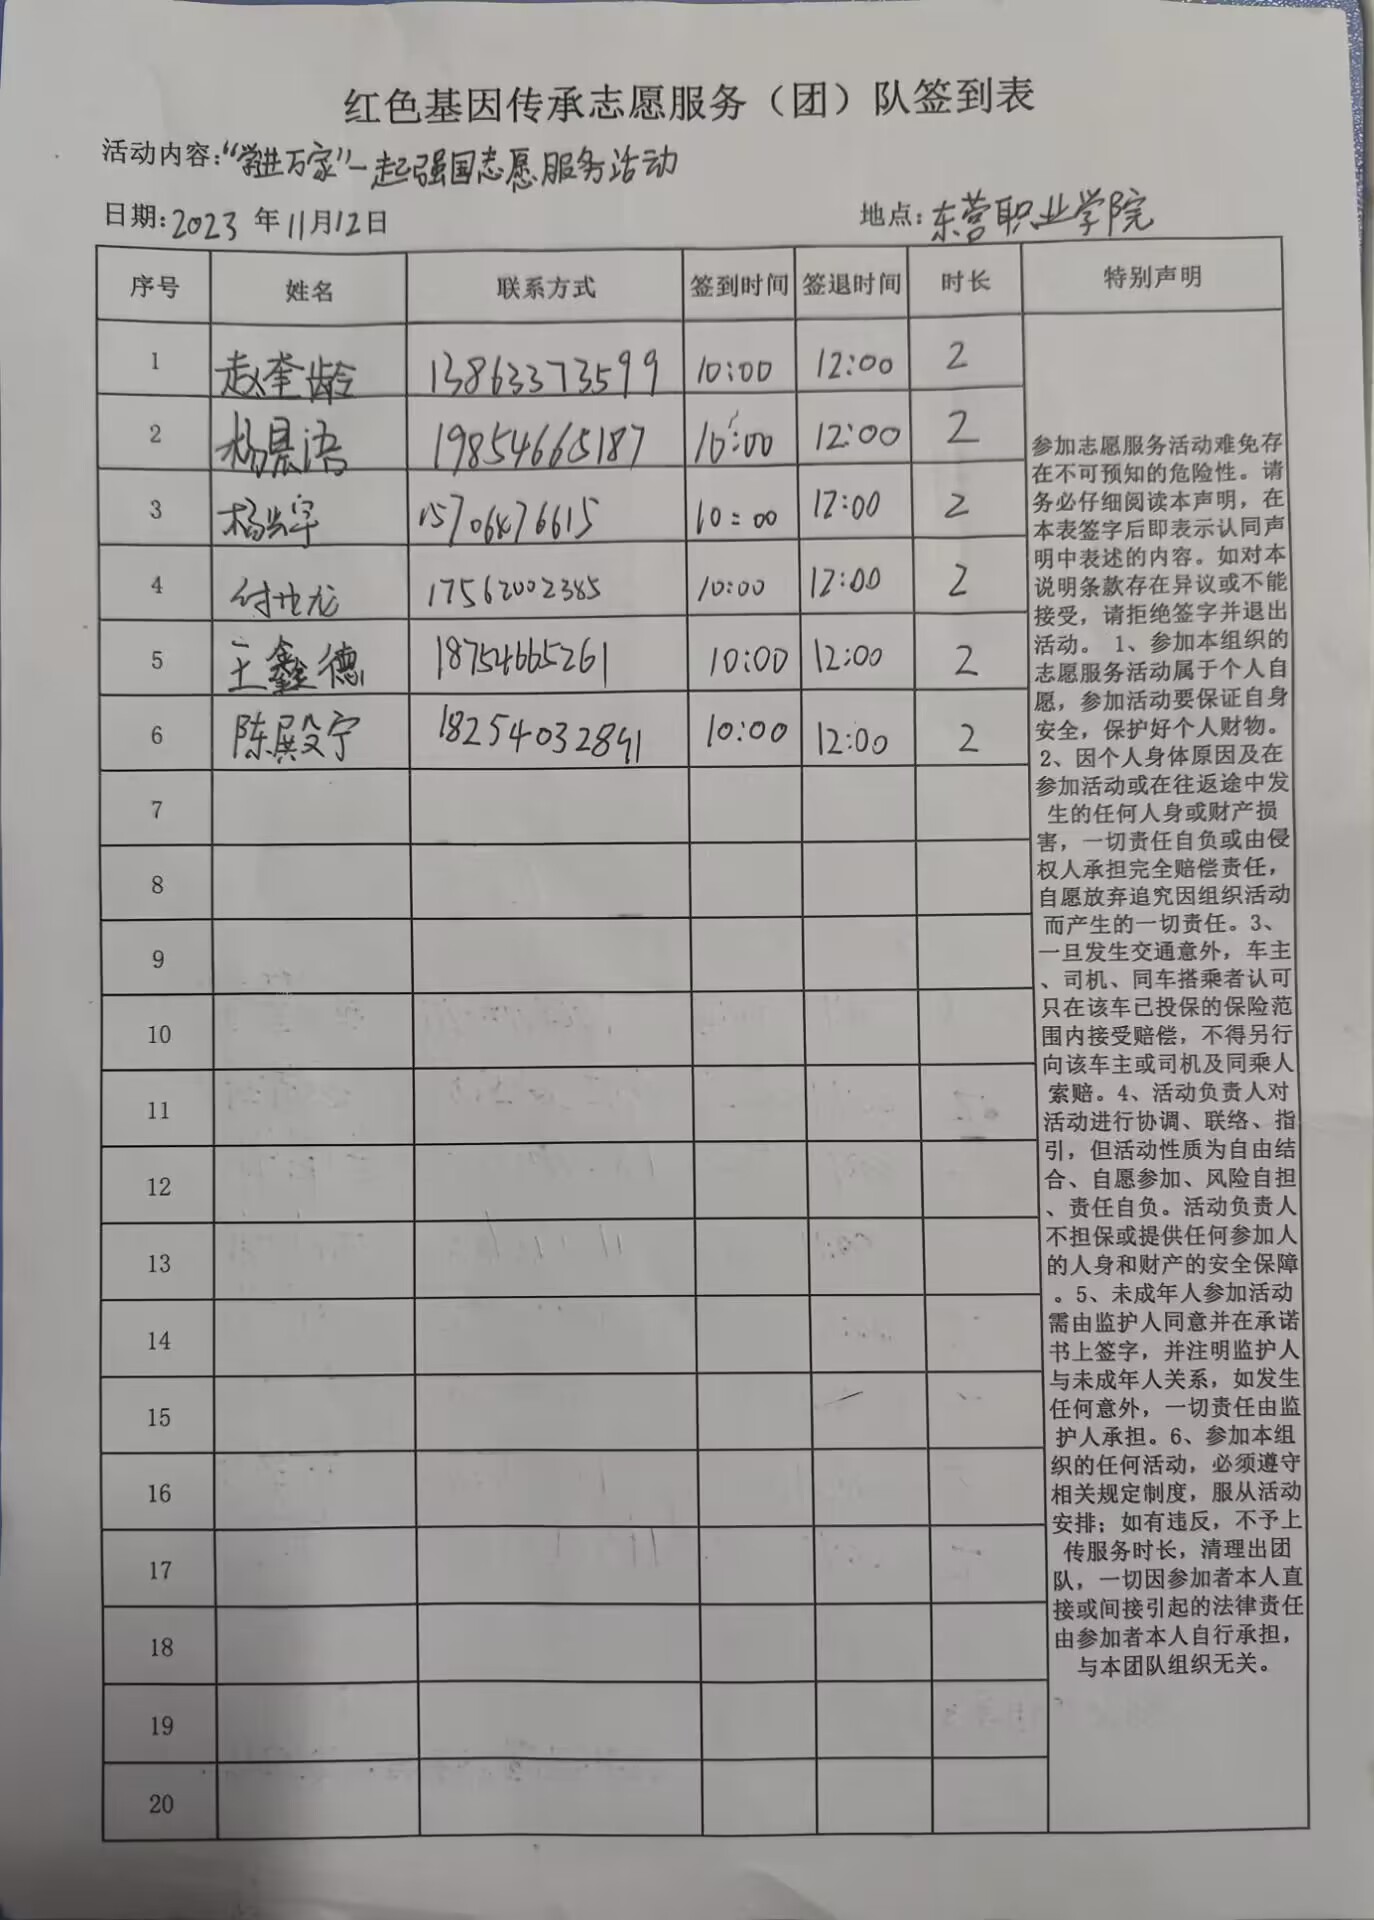 红色基因传承志愿服务（团）队签到表
活动内容:“学进万家”一起强国志愿服务活动
日期:2023年11月12日 地点:东营职业学院
序号 姓名 联系方式 签到时间 签退时间 时长 特别声明
1 赵奎龄 13863373599 10:00 12:00 2
2 杨景浯 19854665187 10:00 12:00 2
3 杨兴宇 15706476615 10:00 12:00 2
4 付世龙 17562002385 10:00 12:00 2
5 王鑫德 18754665261 10:00 12:00 2
6 陈殿宁 18254032891 10:00 12:00 2
7
8
9
10
11
12
13
14
15
16
17
18
19
20
参加志愿服务活动难免存
在不可预知的危险性。请
务必仔细阅读本声明，在
本表签字后即表示认同声
明中表述的内容。如对本
说明条款存在异议或不能
接受，请拒绝签字并退出
活动。1、参加本组织的
志愿服务活动属于个人自
愿，参加活动要保证自身
安全，保护好个人财物。
2、因个人身体原因及在
参加活动或在往返途中发
生的任何人身或财产损
害，一切责任自负或由侵
权人承担完全赔偿责任，
自愿放弃追究因组织活动
而产生的一切责任。3、
一旦发生交通意外，车主
、司机、同车搭乘者认可
只在该车已投保的保险范
围内接受赔偿，不得另行
向该车主或司机及同乘人
索赔。4、活动负责人对
活动进行协调、联络、指
引，但活动性质为自由结
合、自愿参加、风险自担
、责任自负。活动负责人
不担保或提供任何参加人
的人身和财产的安全保障
。5、未成年人参加活动
需由监护人同意并在承诺
书上签字，并注明监护人
与未成年人关系，如发生
任何意外，一切责任由监
护人承担。6、参加本组
织的任何活动，必须遵守
相关规定制度，服从活动
安排；如有违反，不予上
传服务时长，清理出团
队，一切因参加者本人直
接或间接引起的法律责任
由参加者本人自行承担，
与本团队组织无关。